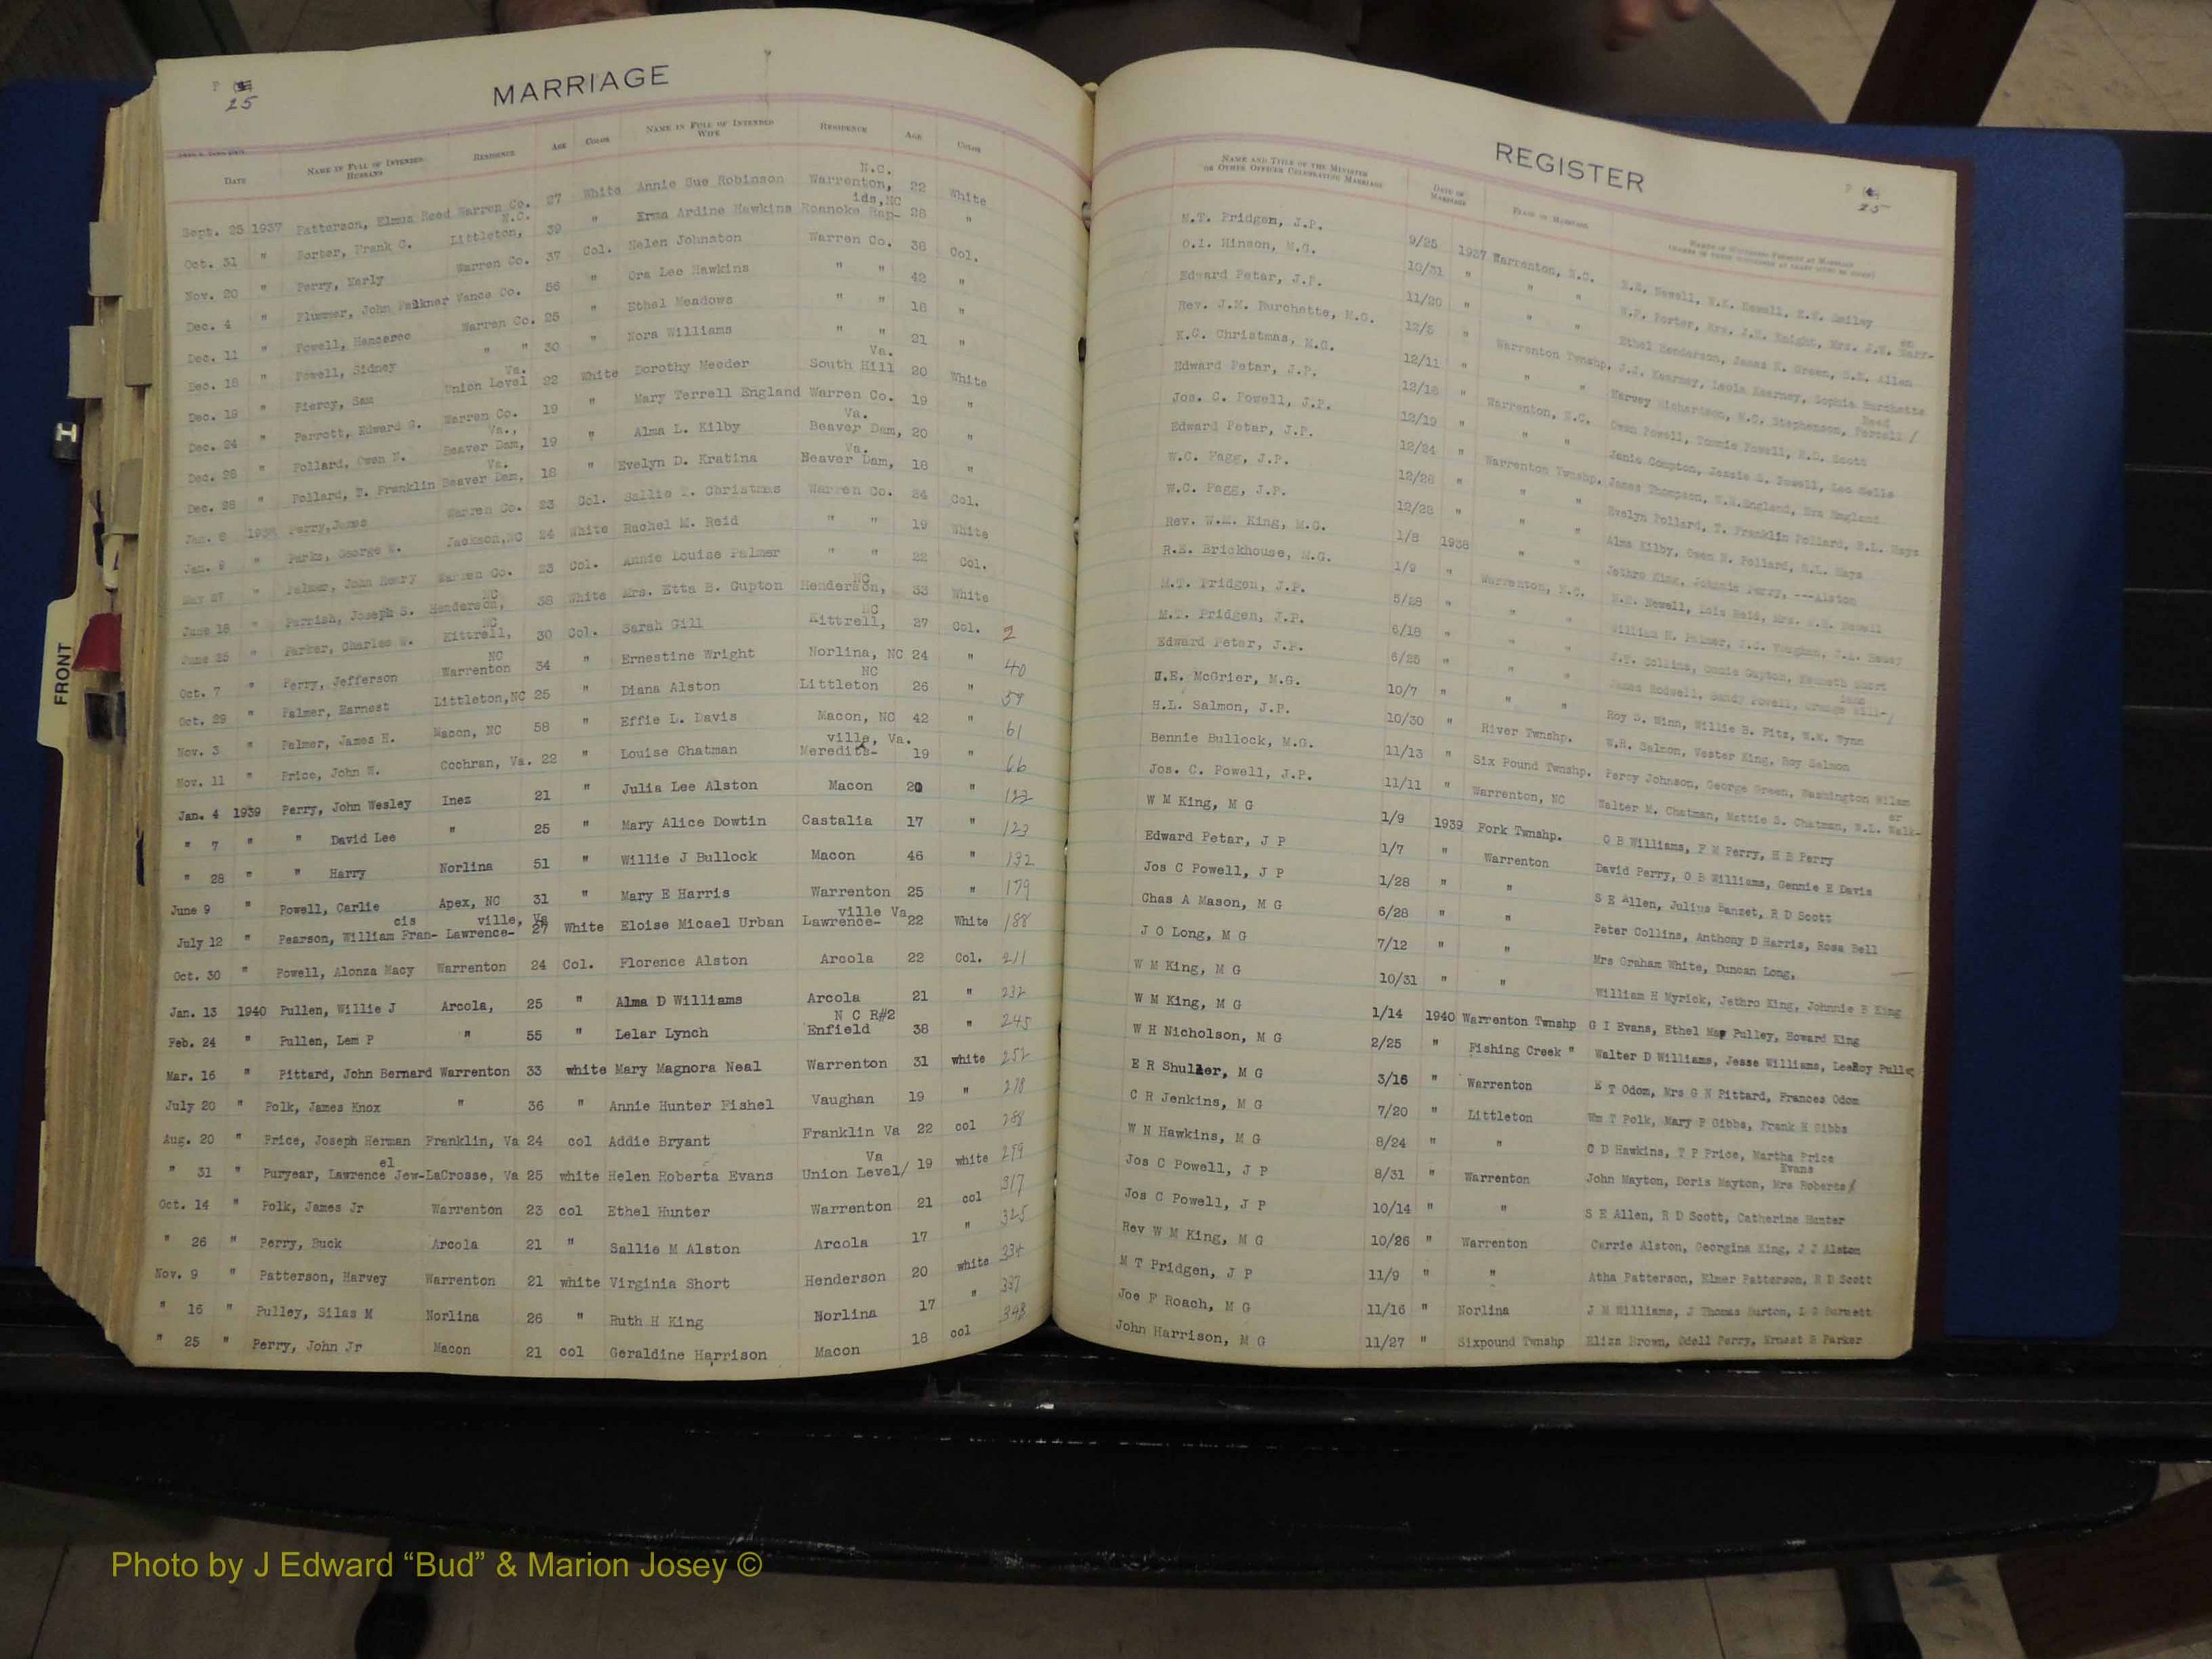 P 25
MARRIAGE
DATE NAME IN FULL OF INTENDED HUSBAND RESIDENCE AGE COLOR NAME IN FULL OF INTENDED WIFE RESIDENCE AGE COLOR
Sept. 25 1937 Patterson, Elmus Reed Warren Co. 27 White Annie Sue Robinson Warrenton, N.C. 22 White
Oct. 31 " Porter, Frank C. Littleton, N.C. 39 " Erma Ardine Hawkins Roanoke Rap-ids, NC 28 "
Nov. 20 " Perry, Early Warren Co. 37 Col. Helen Johnston Warren Co. 38 Col.
Dec. 4 " Plummer, John Falkner Vance Co. 56 " Ora Lee Hawkins " " 42 "
Dec. 11 " Powell, Warren Co. 25 " Ethel Meadows " " 18 "
Dec. 18 " Powell, Sidney " " 30 " Nora Williams " " 21 "
Dec. 19 " Piercy, Sam Union Level Va. 22 White Dorothy Meeder South Hill Va. 20 White
Dec. 24 " Parrott, Edward G. Warren Co. 19 " Mary Terrell England Warren Co. 19 "
Dec. 28 " Pollard, Owen W. Beaver Dam, Va., 19 " Alma L. Kilby Beaver Dam, Va. 20 "
Dec. 28 " Pollard, T. Franklin Beaver Dam, Va. 18 " Evelyn D. Kratina Beaver Dam, Va. 18 "
Jan. 8 1938 Perry, James Warren Co. 23 Col. Sallie Christmas Warren Co. 24 Col.
Jan. 9 " Parks, George W. Jackson, NC 24 White Rachel M. Reid " " 19 White
May 27 " Palmer, John Henry Warren Co. 23 Col. Annie Louise Palmer " " 22 Col.
June 18 " Parrish, Joseph S. Henderson, NC 38 White Mrs. Etta B. Gupton Henderson, NC 33 White
June 25 " Parker, Charles W. Kittrell, NC 30 Col. Sarah Gill Kittrell, NC 27 Col. 2
Oct. 7 " Perry, Jefferson Warrenton NC 34 " Ernestine Wright Norlina, NC 24 " 40
Oct. 29 " Palmer, Earnest Littleton, NC 25 " Diana Alston Littleton NC 26 " 59
Nov. 3 " Palmer, James E. Macon, NC 58 " Effie L. Davis Macon, NC 42 " 61
Nov. 11 " Price, John W. Cochran, Va. 22 " Louise Chatman Meredith-ville, Va. 19 " 66
Jan. 4 1939 Perry, John Wesley Inez 21 " Julia Lee Alston Macon 20 "
" 7 " " David Lee " 25 " Mary Alice Dowtin Castalia 17 " 123
" 28 " " Harry Norlina 51 " Willie J Bullock Macon 46 " 132
June 9 " Powell, Carlie Apex, NC 31 " Mary E Harris Warrenton 25 " 179
July 12 " Pearson, William Fran-cis Lawrence-ville, Va 27 White Eloise Micael Urban Lawrence-ville Va 22 White 188
Oct. 30 " Powell, Alonza Macy Warrenton 24 Col. Florence Alston Arcola 22 Col. 211
Jan. 13 1940 Pullen, Willie J Arcola, 25 " Alma D Williams Arcola 21 " 232
Feb. 24 " Pullen, Lem P " 55 " Lelar Lynch Enfield N C R#2 38 " 245
Mar. 16 " Pittard, John Bernard Warrenton 33 white Mary Magnora Neal Warrenton 31 white 252
July 20 " Polk, James Knox " 36 " Annie Hunter Fishel Vaughan 19 " 278
Aug. 20 " Price, Joseph Herman Franklin, Va 24 col Addie Bryant Franklin Va 22 col 288
" 31 " Puryear, Lawrence Jew-el LaCrosse, Va 25 white Helen Roberta Evans Union Level/ Va 19 white 299
Oct. 14 " Polk, James Jr Warrenton 23 col Ethel Hunter Warrenton 21 col 317
" 26 " Perry, Buck Arcola 21 " Sallie M Alston Arcola 17 " 325
Nov. 9 " Patterson, Harvey Warrenton 21 white Virginia Short Henderson 20 white 334
" 16 " Pulley, Silas M Norlina 26 " Ruth H King Norlina 17 " 337
" 25 " Perry, John Jr Macon 21 col Geraldine Harrison Macon 18 col 343
REGISTER
P 25
NAME AND TITLE OF THE MINISTER OR OTHER OFFICER CELEBRATING MARRIAGE DATE OF MARRIAGE PLACE OF MARRIAGE
M.T. Pridgen, J.P. 9/25 1937 Warrenton, N.C.
O.I. Hinson, M.G. 10/31 " " "
Edward Petar, J.P. 11/20 " " " Ethel Henderson, James H. Green, S.E. Allen
Rev. J.M. Burchette, M.G. 12/5 " Warrenton Twnshp. J.J. Kearney, Leola Kearney, Sophia Burchette
K.C. Christmas, M.G. 12/11 " " " Harvey Richardson, W.C. Stephenson,
Edward Petar, J.P. 12/18 " Warrenton, N.C. Owen Powell, Tommie Powell, R.D. Scott
Jos. C. Powell, J.P. 12/19 " " " Janie Compton, Jessie Powell, Leo Wells
Edward Petar, J.P. 12/24 " Warrenton Twnshp. James Thompson, W.W. England, Eva England
W.C. Fagg, J.P. 12/28 " " " Evelyn Pollard, T. Franklin Pollard, W.L. Hays
W.C. Fagg, J.P. 12/28 " " " Alma Kilby, Owen W. Pollard, W.L. Hays
Rev. W.M. King, M.G. 1/8 1938 " Jethro King, Johnnie Perry, ---Alston
R.E. Brickhouse, M.G. 1/9 " Warrenton, N.C. Newell, Lois Reid, Mrs. Newell
M.T. Pridgen, J.P. 5/28 " " " William H. Palmer,
M.T. Pridgen, J.P. 6/18 " " " J.P. Collins, Oncie Gupton, Kenneth Short
Edward Petar, J.P. 6/25 " " " James Rodwell, Sandy Powell,
McGrier, M.G. 10/7 " " " Roy S. Winn, Willie B. Fitz, W.M. Wynn
H.L. Salmon, J.P. 10/30 " River Twnshp. W.H. Salmon, Vester King, Roy Salmon
Bennie Bullock, M.G. 11/13 " Six Pound Twnshp. Percy Johnson, George Green, Washington Milam
Jos. C. Powell, J.P. 11/11 " Warrenton, NC Walter M. Chatman, Mattie S. Chatman, W.L. Walk-er
W M King, M G 1/9 1939 Fork Twnshp. O B Williams, F M Perry, H B Perry
Edward Petar, J P 1/7 " Warrenton David Perry, O B Williams, Gennie E Davis
Jos C Powell, J P 1/28 " " S E Allen, Julius Banzet, R D Scott
Chas A Mason, M G 6/28 " " Peter Collins, Anthony D Harris, Rosa Bell
J O Long, M G 7/12 " " Mrs Graham White, Duncan Long,
W M King, M G 10/31 " " William H Myrick, Jethro King, Johnnie B King
W M King, M G 1/14 1940 Warrenton Twnshp G I Evans, Ethel May Pulley, Howard King
W H Nicholson, M G 2/25 " Fishing Creek " Walter D Williams, Jesse Williams, LeeRoy
E R Shuller, M G 3/16 " Warrenton E T Odom, Mrs G N Pittard, Frances Odom
C R Jenkins, M G 7/20 " Littleton Wm T Polk, Mary P Gibbs, Frank H Gibbs
W N Hawkins, M G 8/24 " " C D Hawkins, T P Price, Martha Price
Jos C Powell, J P 8/31 " Warrenton John Mayton, Doris Mayton, Mrs Roberta/ Evans
Jos C Powell, J P 10/14 " " S E Allen, R D Scott, Catherine Hunter
Rev W M King, M G 10/26 " Warrenton Carrie Alston, Georgina King, J J Alston
M T Pridgen, J P 11/9 " " Atha Patterson, Elmer Patterson, R D Scott
Joe F Roach, M G 11/16 " Norlina J M Williams, J Thomas Burton,
John Harrison, M G 11/27 " Sixpound Twnshp Eliza Brown, Odell Perry, Ernest B Parker
H
FRONT
Photo by J Edward “Bud” & Marion Josey ©